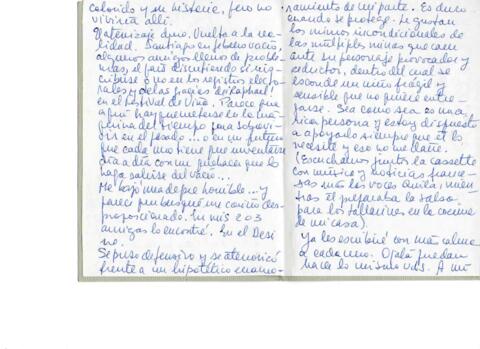 colorido y su histeria, pero no
viviría allí.
Y aterrizaje duro. Vuelta a la rea-
lidad. Santiago en febrero vacío,
algunos amigos llenos de proble-
mas, el país discutiendo si ins-
cribirse o no en los registros electo-
rales y de las fogies de Raphael!
en el Festival de Viña. Parece que
aquí hay que meterse en la má-
quina del tiempo para sobrevi-
vir en el pasado... o en un futuro
que cada uno tiene que inventarse
día a día con un pedazo que lo
haga salirse del vacío...
Me bajó una depre horrible... y
parece que busqué un cariño des-
proporcionado. En mis 2 o 3
amigos lo encontré. En el Desi
no.
Se puso defensivo y se atemorizó
frente a un hipotético enamo-
ramiento de mi parte. Es duro
cuando se protege. Le gustan
los mimos incondicionales de
las múltiples minas que caen
ante su personaje provocador y
seductor, dentro del cual se
esconde un niño frágil y
sensible que no quiere entre-
garse. Sea como sea es una
rica persona y estoy dispuesta
a apoyarlo siempre que él lo
necesite y eso no me dañe.
(Escuchamos juntos la cassette
con música y noticias france-
sas más las voces Quila, mien-
tras él preparaba la salsa
para los tallarines en la cocina
de mi casa).
Ya les escribiré con más calma
a cada uno. Ojalá puedan
hacer lo mismo uds. A mí